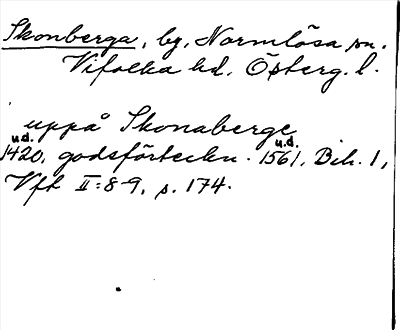 Skonberga, by, Normlösa sn.
Vifolka hd, Österg. l.
uppå Skonaberge
u.d. u.d.
1420, godsförteckn. 1561, Bih. 1,
Vfk II:8-9, s. 174.